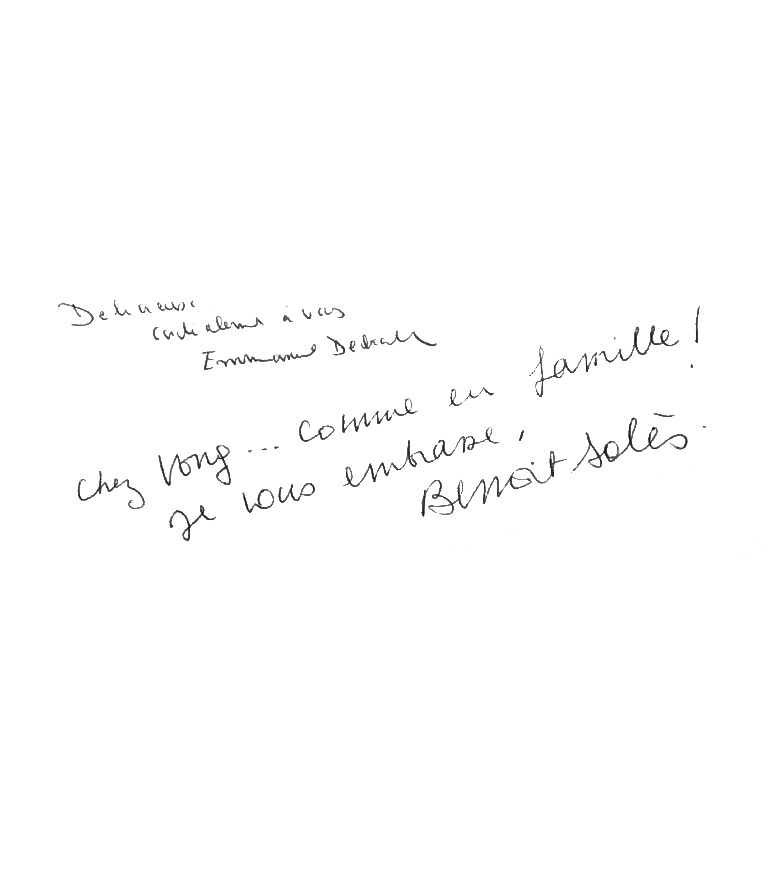 Delicieux
Cordialement à vous
Emmanuel
Chez Vong... comme en famille!
Je vous embrasse,
Benoit Solès.